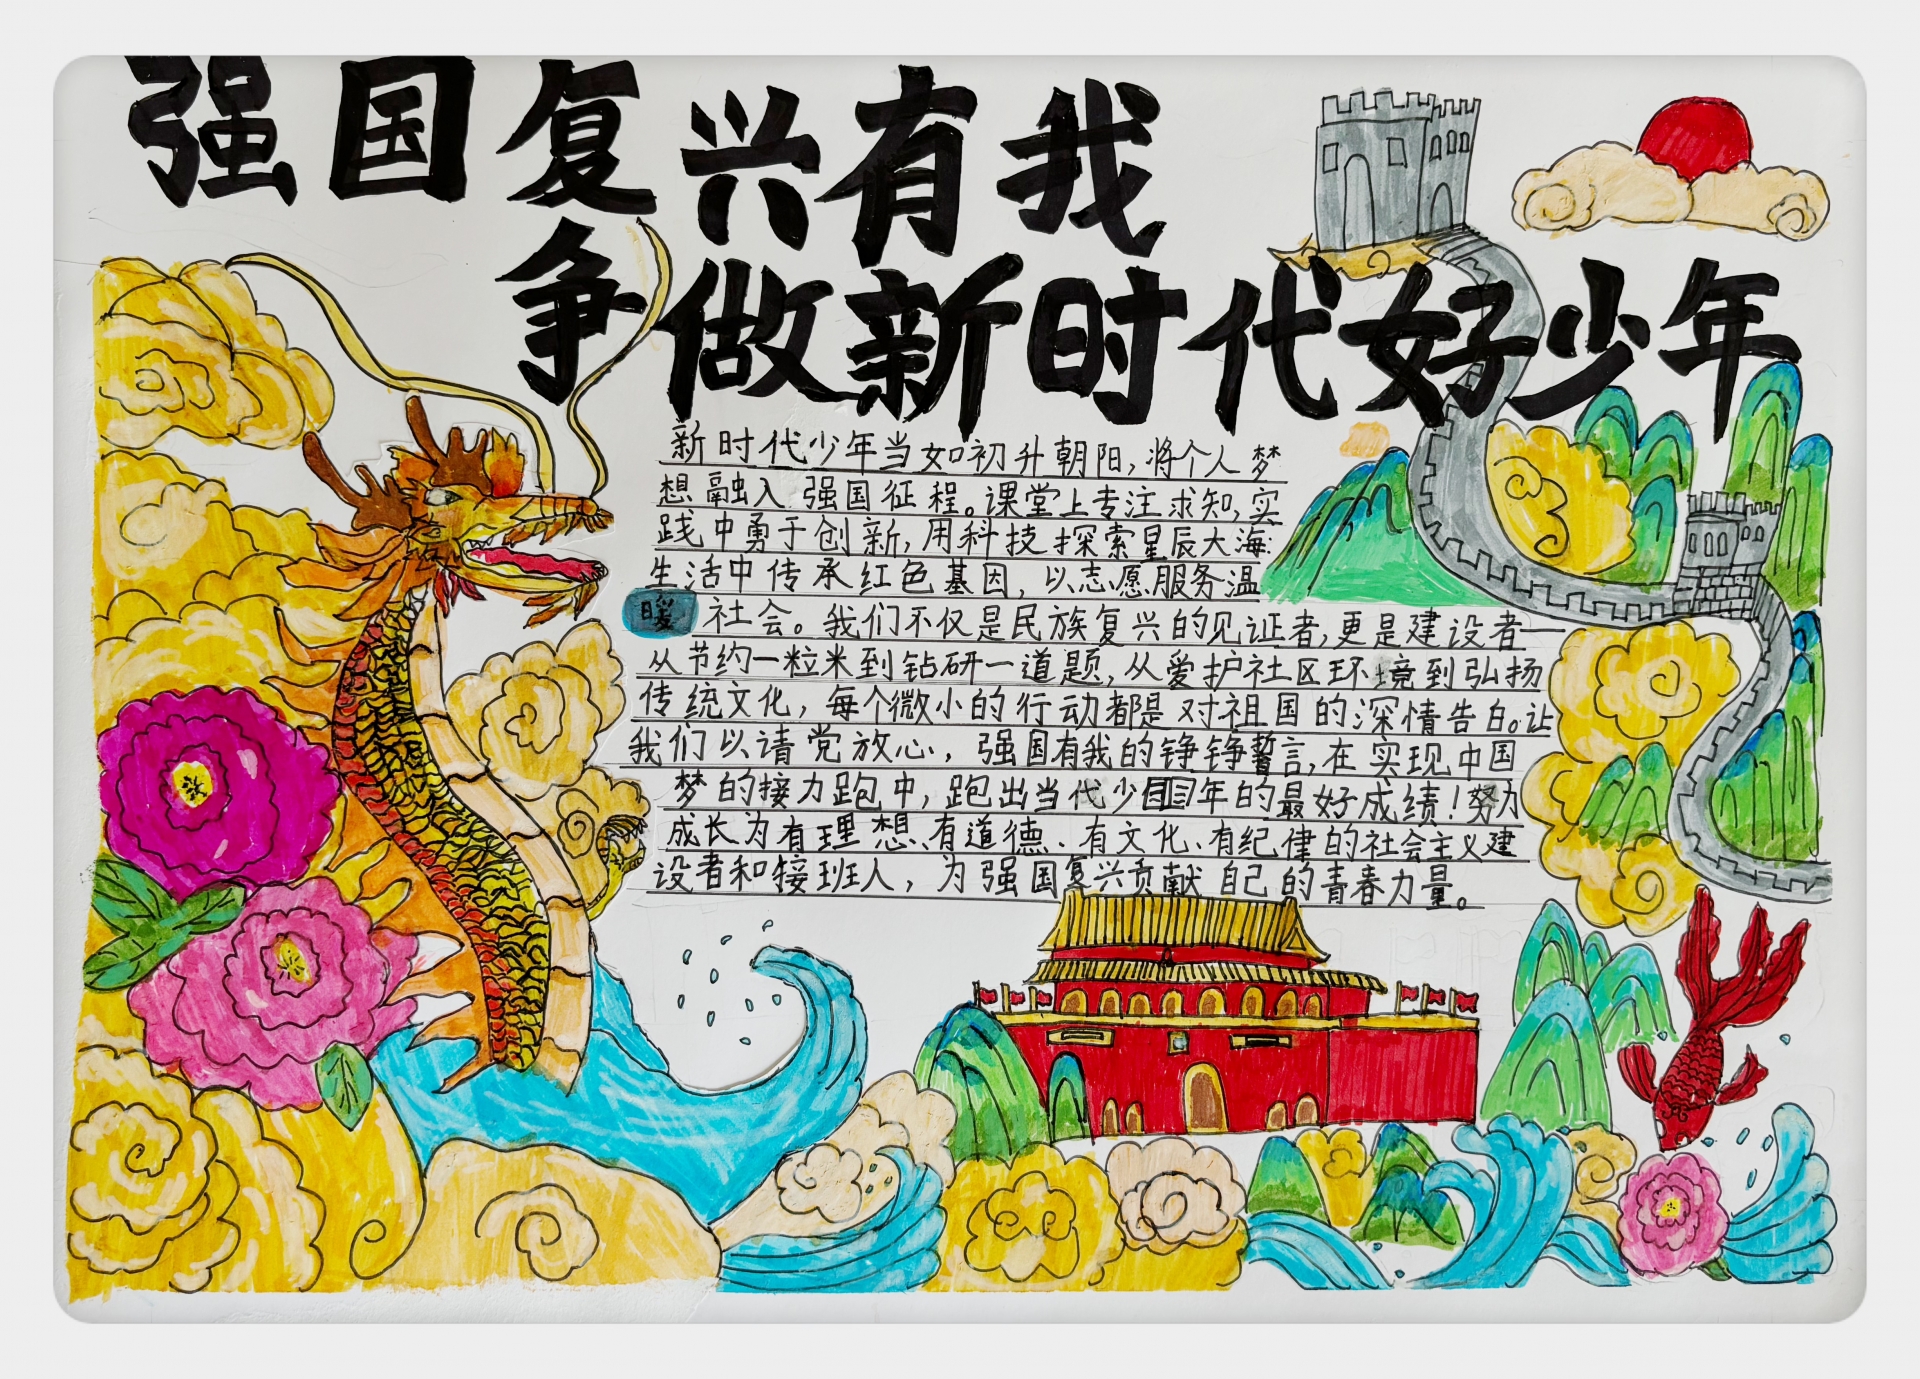 强国复兴有我
争做新时代好少年
新时代少年当如初升朝阳,将个人梦
想融入强国征程。课堂上专注求知,实
践中勇于创新,用科技探索星辰大海:
生活中传承红色基因,以志愿服务温
暖社会。我们不仅是民族复兴的见证者,更是建设者一
从节约一粒米到钻研一道题,从爱护社区环境到弘扬
传统文化,每个微小的行动都是对祖国的深情告白。让
我们以请党放心,强国有我的铮铮誓言,在实现中国
梦的接力跑中,跑出当代少年的最好成绩!努力
成长为有理想、有道德、有文化、有纪律的社会主义建
设者和接班人,为强国复兴贡献自己的青春力量。